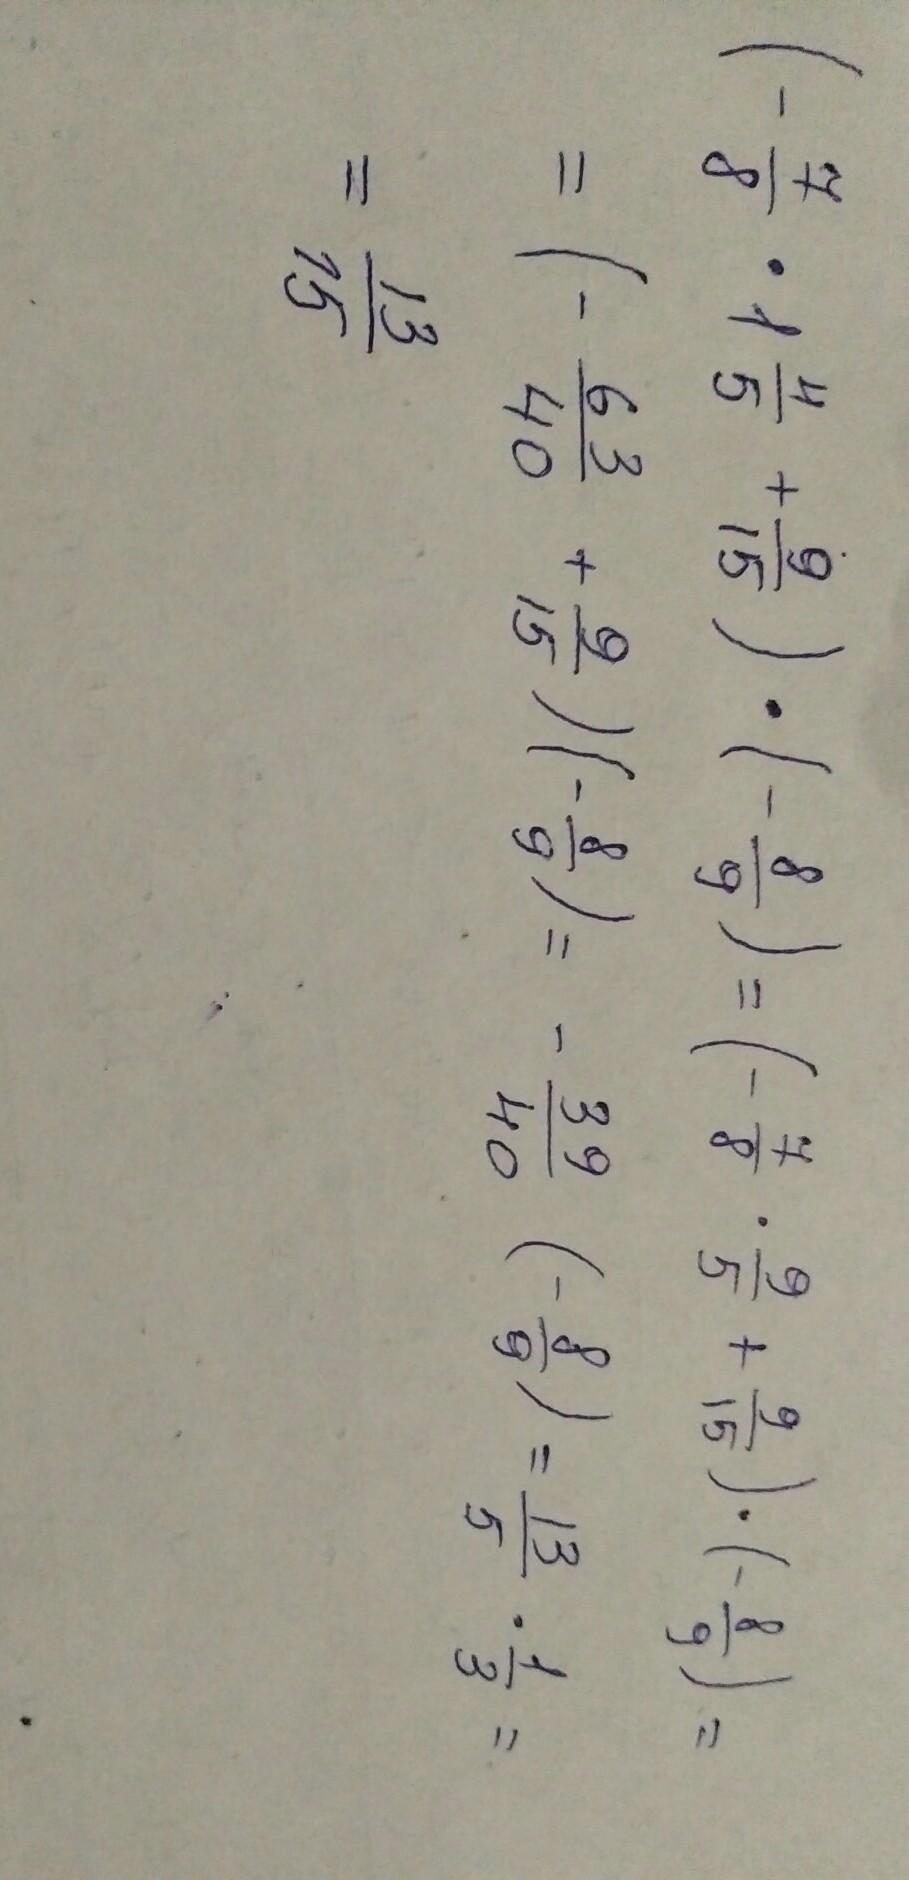 (-7/8 · 1 4/5 + 9/15) · (-8/9) = (-7/8 · 9/5 + 9/15) · (-8/9) =
= (-63/40 + 9/15)(-8/9) = -39/40 (-8/9) = 13/5 · 1/3 =
= 13/15